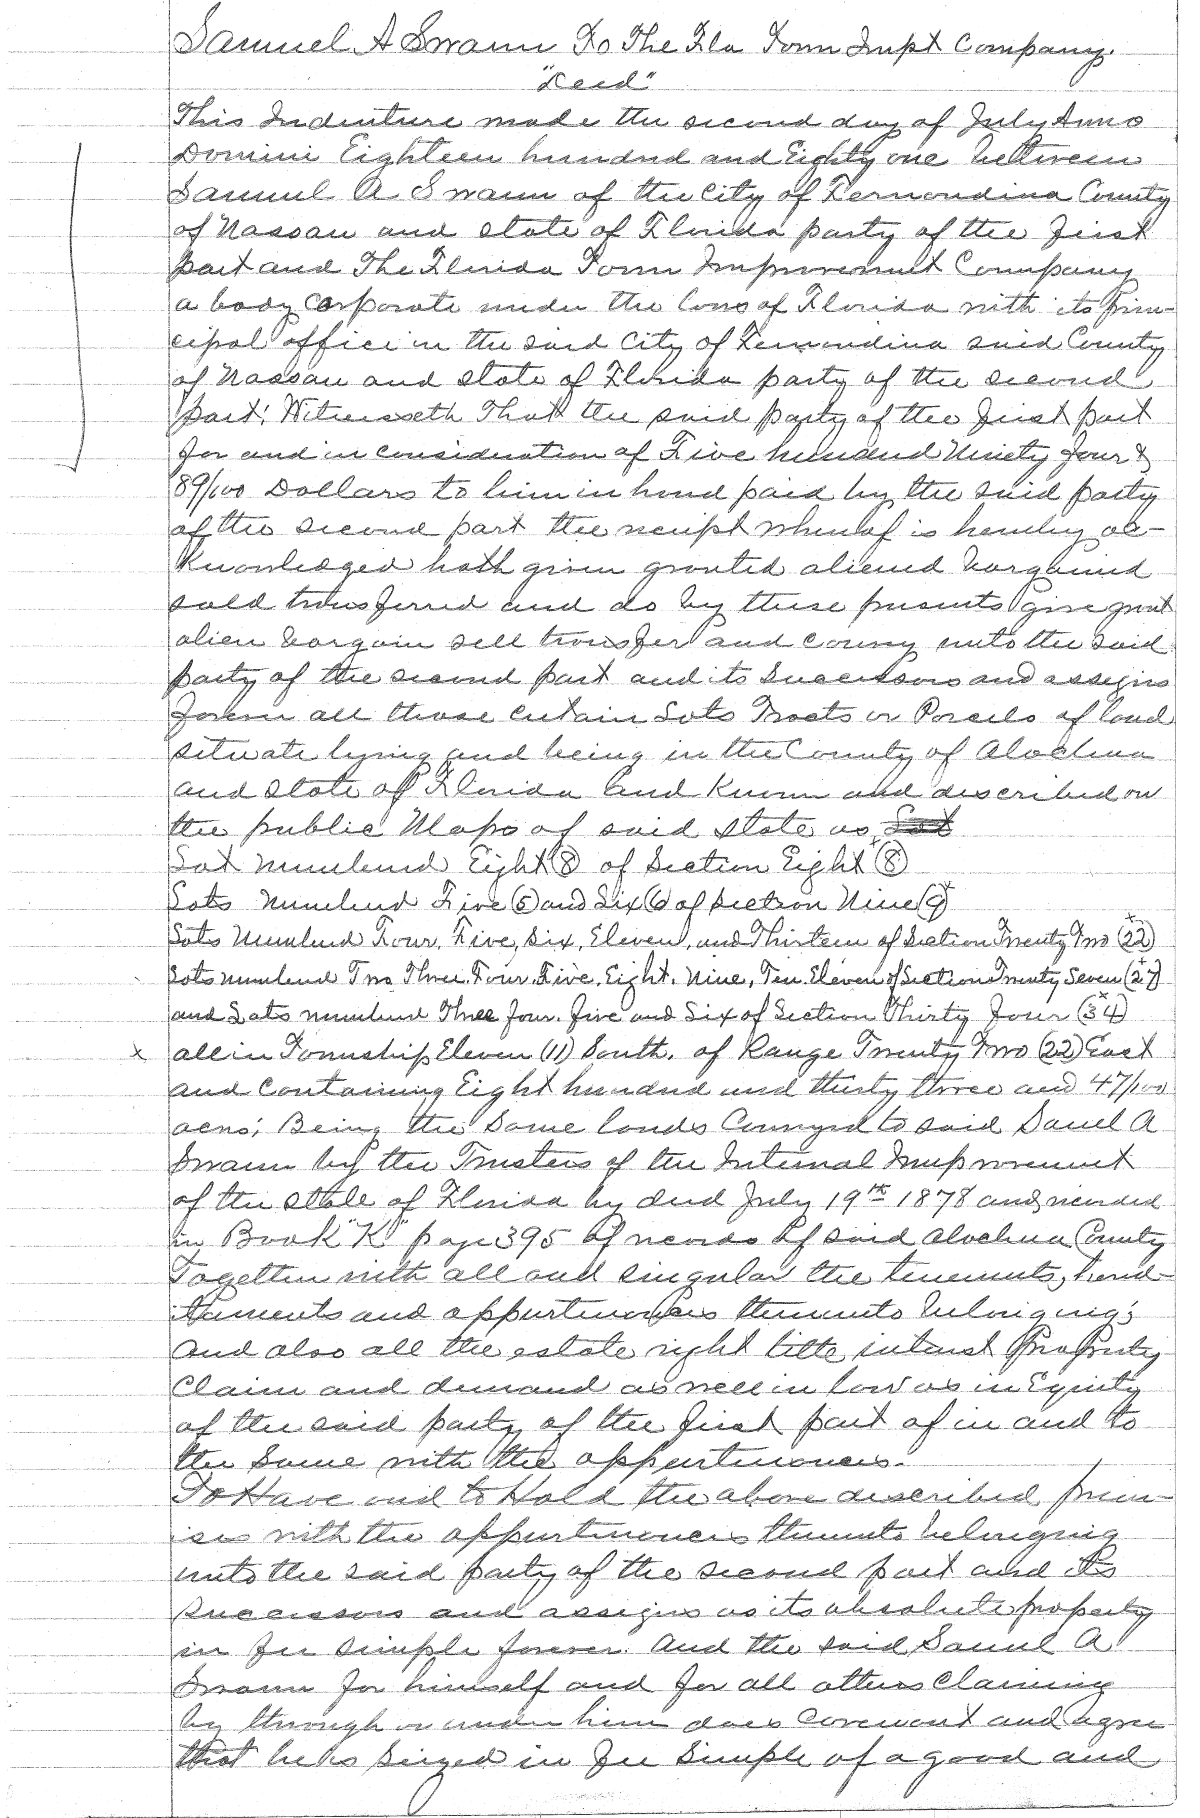 Samuel A Swann To The Fla Town Impt Company.
"Deed"
This Indenture made the second day of July Anno
Domini Eighteen hundred and Eighty one between
Samuel A Swann of the City of Fernandina County
of Nassau and state of Florida party of the first
part and The Florida Town Improvement Company
a body Corporate under the laws of Florida with its prin-
cipal office in the said City of Fernandina said County
of Nassau and state of Florida party of the second
part; Witnesseth That the said party of the first part
for and in consideration of Five hundred Ninety four &
89/100 Dollars to him in hand paid by the said party
of the second part the receipt whereof is hereby ac-
knowledged hath given granted aliened bargained
sold transferred and do by these presents give grant
alien bargain sell transfer and convey unto the said
party of the second part and its Successors and assigns
forever all those certain Lots Tracts or Parcels of land
situate lying and being in the County of Alachua
and state of Florida and Known and described on
the public Maps of said state as Lot
Lot numbered Eight (8) of Section Eight (8)
Lots numbered Five (5) and Six (6) of Section Nine (9)
Lots Numbered Four, Five, Six, Eleven, and Thirteen of Section Twenty Two (22)
Lots numbered Two Three, Four, Five, Eight, Nine, Ten, Eleven of Section Twenty Seven (27)
and Lots numbered Three four, five and Six of Section Thirty four (34)
x all in Township Eleven (11) South, of Range Twenty Two (22) East
and containing Eight hundred and thirty three and 47/100
acres; Being the Same lands Conveyed to said Samuel A
Swann by the Trustees of the Internal Improvement
of the state of Florida by deed July 19th 1878 and recorded
in Book "K" page 395 of records of said Alachua County
Together with all and singular the tenements, heredi-
taments and appurtenances thereunto belonging;
And also all the estate right title interest Property
Claim and demand as well in law as in Equity
of the said party of the first part of in and to
the Same with the appurtenances.
To Have and to Hold the above described prem-
ises with the appurtenances thereunto belonging
unto the said party of the second part and its
Successors and assigns as its absolute property
in fee simple forever. And the said Samuel A
Swann for himself and for all others Claiming
by through or under him does Covenant and agree
that he is Seized in fee Simple of a good and